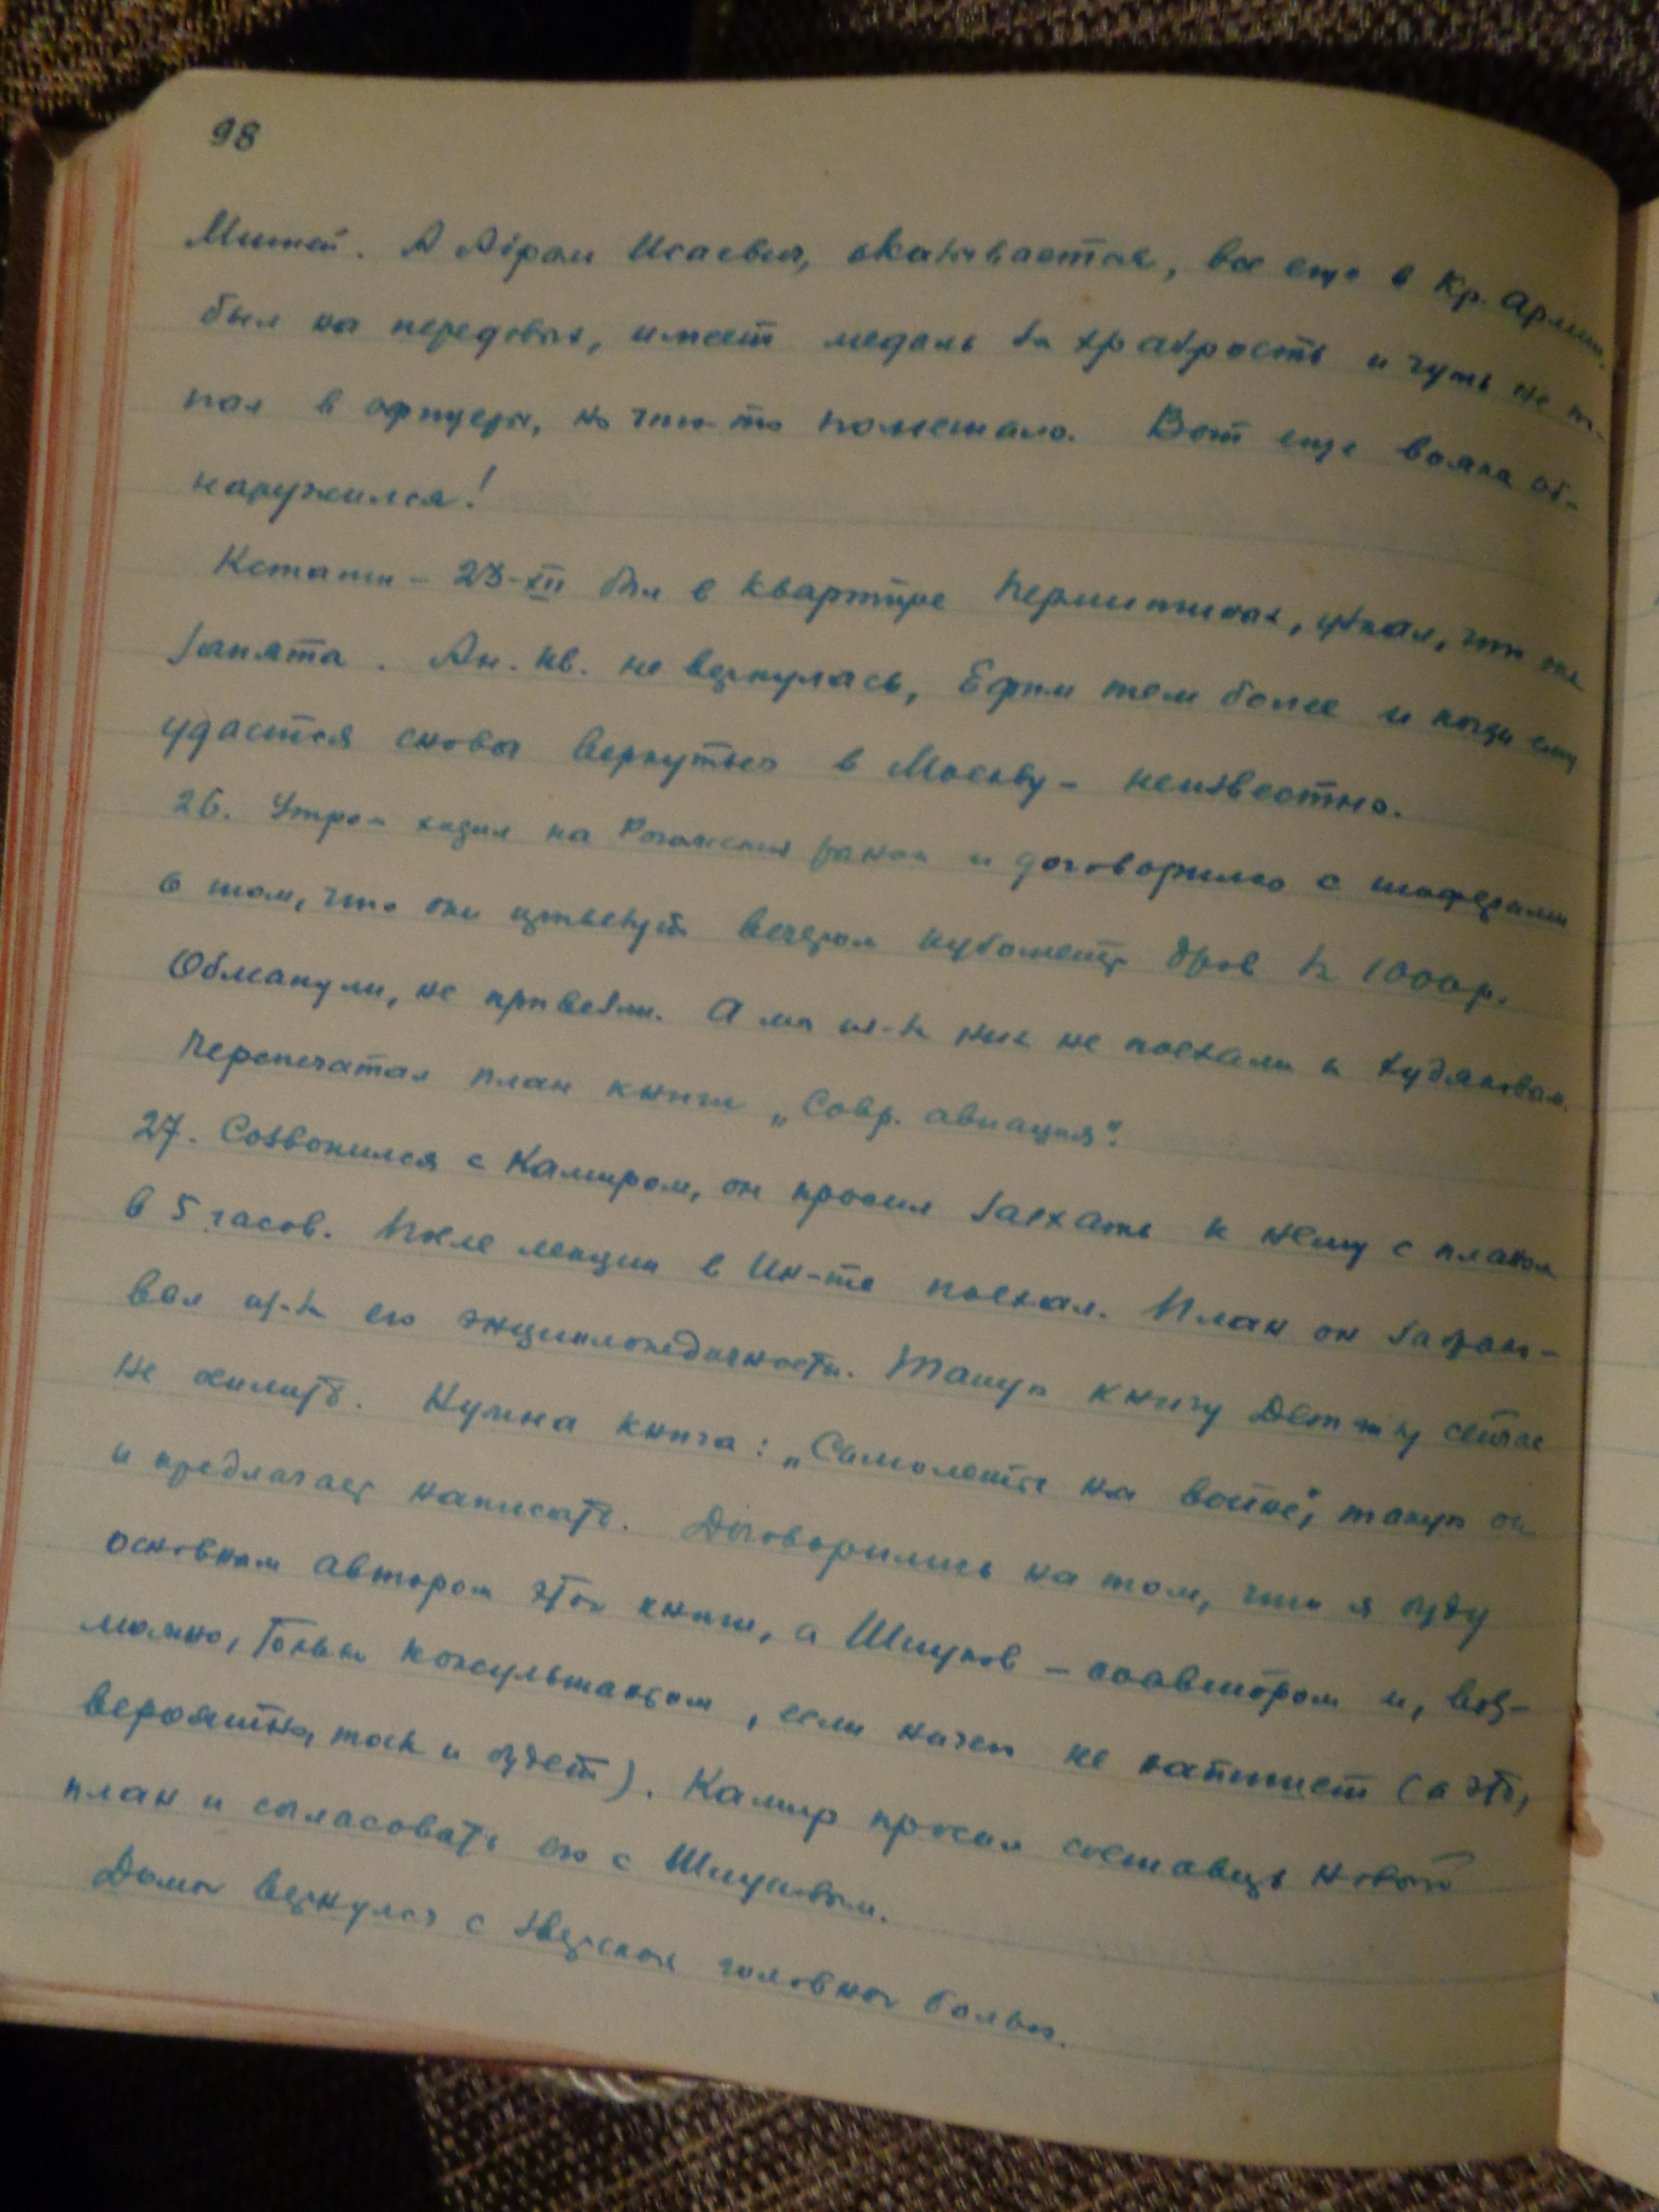 98
Мишей. А Абрам Исаевич, оказывается, все еще в Кр. Армии,
был на передовых, имеет медаль за храбрость и чуть не по-
пал в офицеры, но что-то помешало. Вот еще вояка об-
наружился!
Кстати – 23-XII был в квартире Пермитиных, узнал, что она
занята. Ан. Ив. не вернулась, Ефим тем более и когда ему
удастся снова вернуться в Москву – неизвестно.
26. Утром ходил на Рогожский рынок и договорился с шоферами
о том, что они привезут вечером кубометр дров за 1000 р.
Обманули, не привезли. А мы из-за них не поехали к Худяковым.
Перепечатал план книги „Совр. авиация".
27. Созвонился с Камиром, он просил заехать к нему с планом
в 5 часов. После лекции в Ин-те поехал. План он забрако-
вал из-за его энциклопедичности. Такую книгу Детгизу сейчас
не осилить. Нужна книга: „Самолеты на войне", такую он
и предлагает написать. Договорились на том, что я буду
основным автором этой книги, а Шиуков – соавтором и, воз-
можно, только консультантом, если ничего не напишет (а это,
вероятно, так и будет). Камир просил составить новый
план и согласовать его с Шиуковым.
Домой вернулся с зверской головной болью.